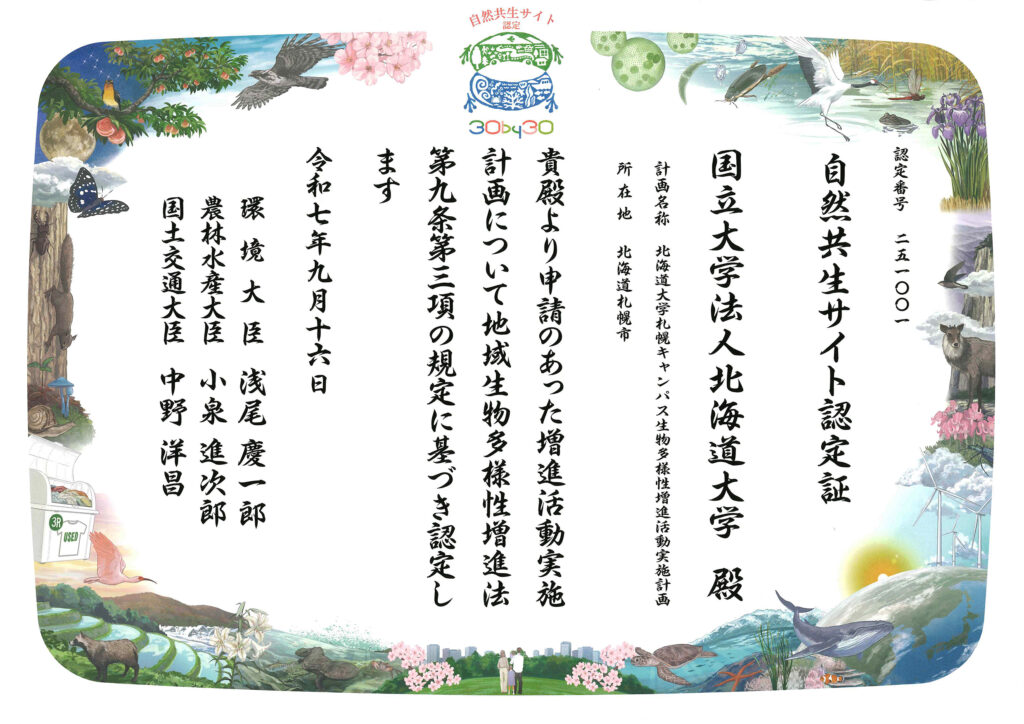 自然共生サイト
認定
30by30
認定番号 二五一〇〇一
自然共生サイト認定証
国立大学法人北海道大学 殿
計画名称 北海道大学札幌キャンパス生物多様性増進活動実施計画
所在地 北海道札幌市
貴殿より申請のあった増進活動実施
計画について地域生物多様性増進法
第九条第三項の規定に基づき認定し
ます
令和七年九月十六日
環境大臣 浅尾慶一郎
農林水産大臣 小泉進次郎
国土交通大臣 中野洋昌
3R
USED